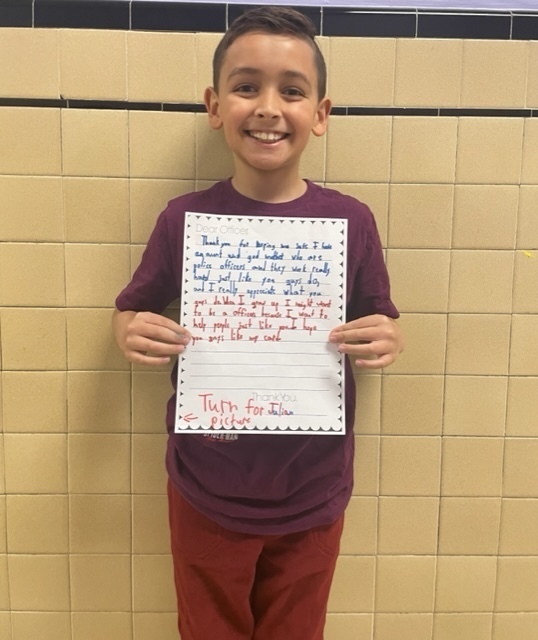 Dear Officer,
Thank you for keeping me safe I have
an aunt and god mother who are
police officers and they work really
hard just like you guys do,
and I really appreciate what you
guys do. When I grow up I might want
to be a officer because I want to
help people just like you. I hope
you guys like my card
Thank You,
Turn for Julian
← picture